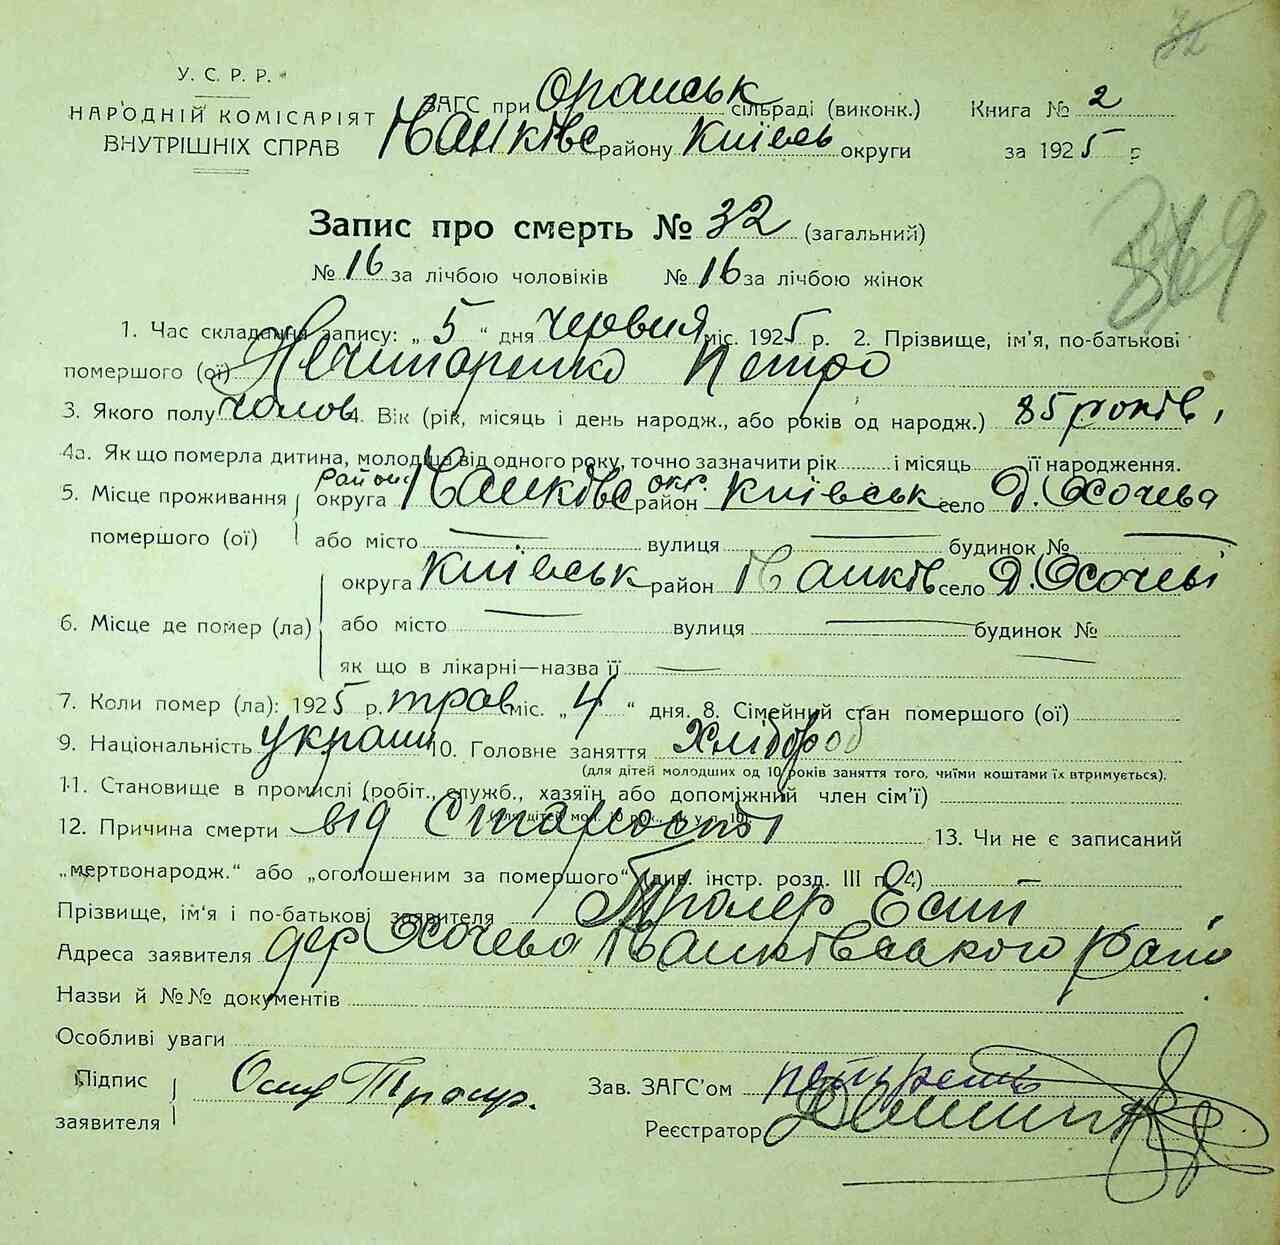 32
У. С. Р. Р.
НАРОДНІЙ КОМІСАРІЯТ
ВНУТРІШНІХ СПРАВ
ЗАГС при Оранськ сільраді (виконк.)
Іванківс району Київсь округи
Книга № 2
за 1925 р
Запис про смерть № 32 (загальний)
369
№ 16 за лічбою чоловіків № 16 за лічбою жінок
1. Час складання запису: „ 5 “ дня червня міс. 1925 р. 2. Прізвище, ім'я, по-батькові
помершого (ої) Нечипоренко Петро
3. Якого полу чолов 4. Вік (рік, місяць і день народж., або років од народж.) 85 років,
4а. Як що померла дитина, молодша від одного року, точно зазначити рік і місяць її народження.
5. Місце проживання помершого (ої) округа район Іванківс район окр. Київськ село Д. Осочева
або місто — вулиця — будинок № —
6. Місце де помер (ла) округа Київськ район Іванків село Д. Осочеві
або місто — вулиця — будинок № —
як що в лікарні—назва її —
7. Коли помер (ла): 1925 р. трав міс. „ 4 “ дня. 8. Сімейний стан помершого (ої)
9. Національність україн 10. Головне заняття Хлібороб
(для дітей молодших од 10 років заняття того, чиїми коштами їх втримується).
11. Становище в промислі (робіт., служб., хазяїн або допоміжний член сім'ї)
12. Причина смерти від Старості 13. Чи не є записаний
„мертвонародж.“ або „оголошеним за помершого“ (див. інстр. розд. III п. 4) —
Прізвище, ім'я і по-батькові заявителя Есип
Адреса заявителя дер Осочева Іванківського райо
Назви й №№ документів
Особливі уваги
Підпис заявителя
Зав. ЗАГС'ом
Реєстратор